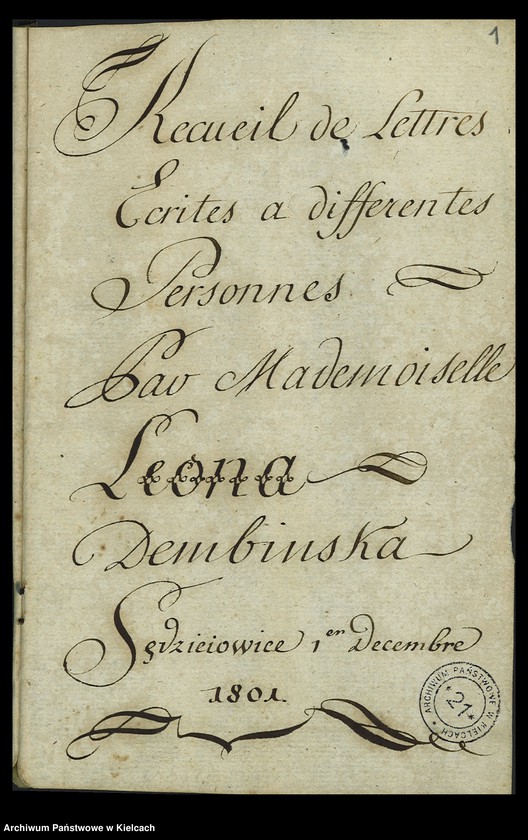 1
Recueil de Lettres
Ecrites a differentes
Personnes
Par Mademoiselle
Leona
Dembinska
Sędzieiowice 1en Decembre
1801.
ARCHIWUM PAŃSTWOWE W KIELCACH
*21*
Archiwum Państwowe w Kielcach